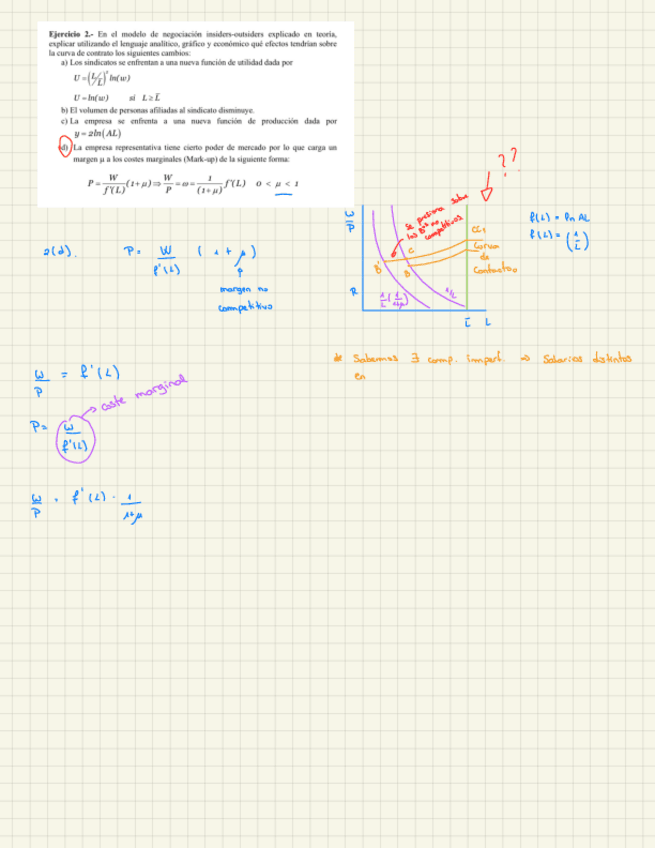 Ejercicio 2.- En el modelo de negociación insiders-outsiders explicado en teoría,
explicar utilizando el lenguaje analítico, gráfico y económico qué efectos tendrían sobre
la curva de contrato los siguientes cambios:
a) Los sindicatos se enfrentan a una nueva función de utilidad dada por
U = (L/L̄)^γ ln(w)
U = ln(w) si L ≥ L̄
b) El volumen de personas afiliadas al sindicato disminuye.
c) La empresa se enfrenta a una nueva función de producción dada por
y = 2ln(AL)
d) La empresa representativa tiene cierto poder de mercado por lo que carga un
margen μ a los costes marginales (Mark-up) de la siguiente forma:
P = W/f'(L) (1+μ) ⇒ W/P = ω = 1/(1+μ) f'(L) 0 < μ < 1
2(d). P = W/f'(L) (1 + μ)
margen no
competitivo
??
Se presiona sobre
los Bºs no
competitivos
ω/P
CC1
Curva
de
Contactos
C
B'
B
R
1/L (1/1+μ)
1/L
L̄ L
f(L) = ln AL
f'(L) = (1/L)
* Sabemos ∃ comp. imperf. ⇒ Salarios distintos
en
ω/P = f'(L)
coste marginal
P = ω/f'(L)
ω/P = f'(L) · 1/1+μ